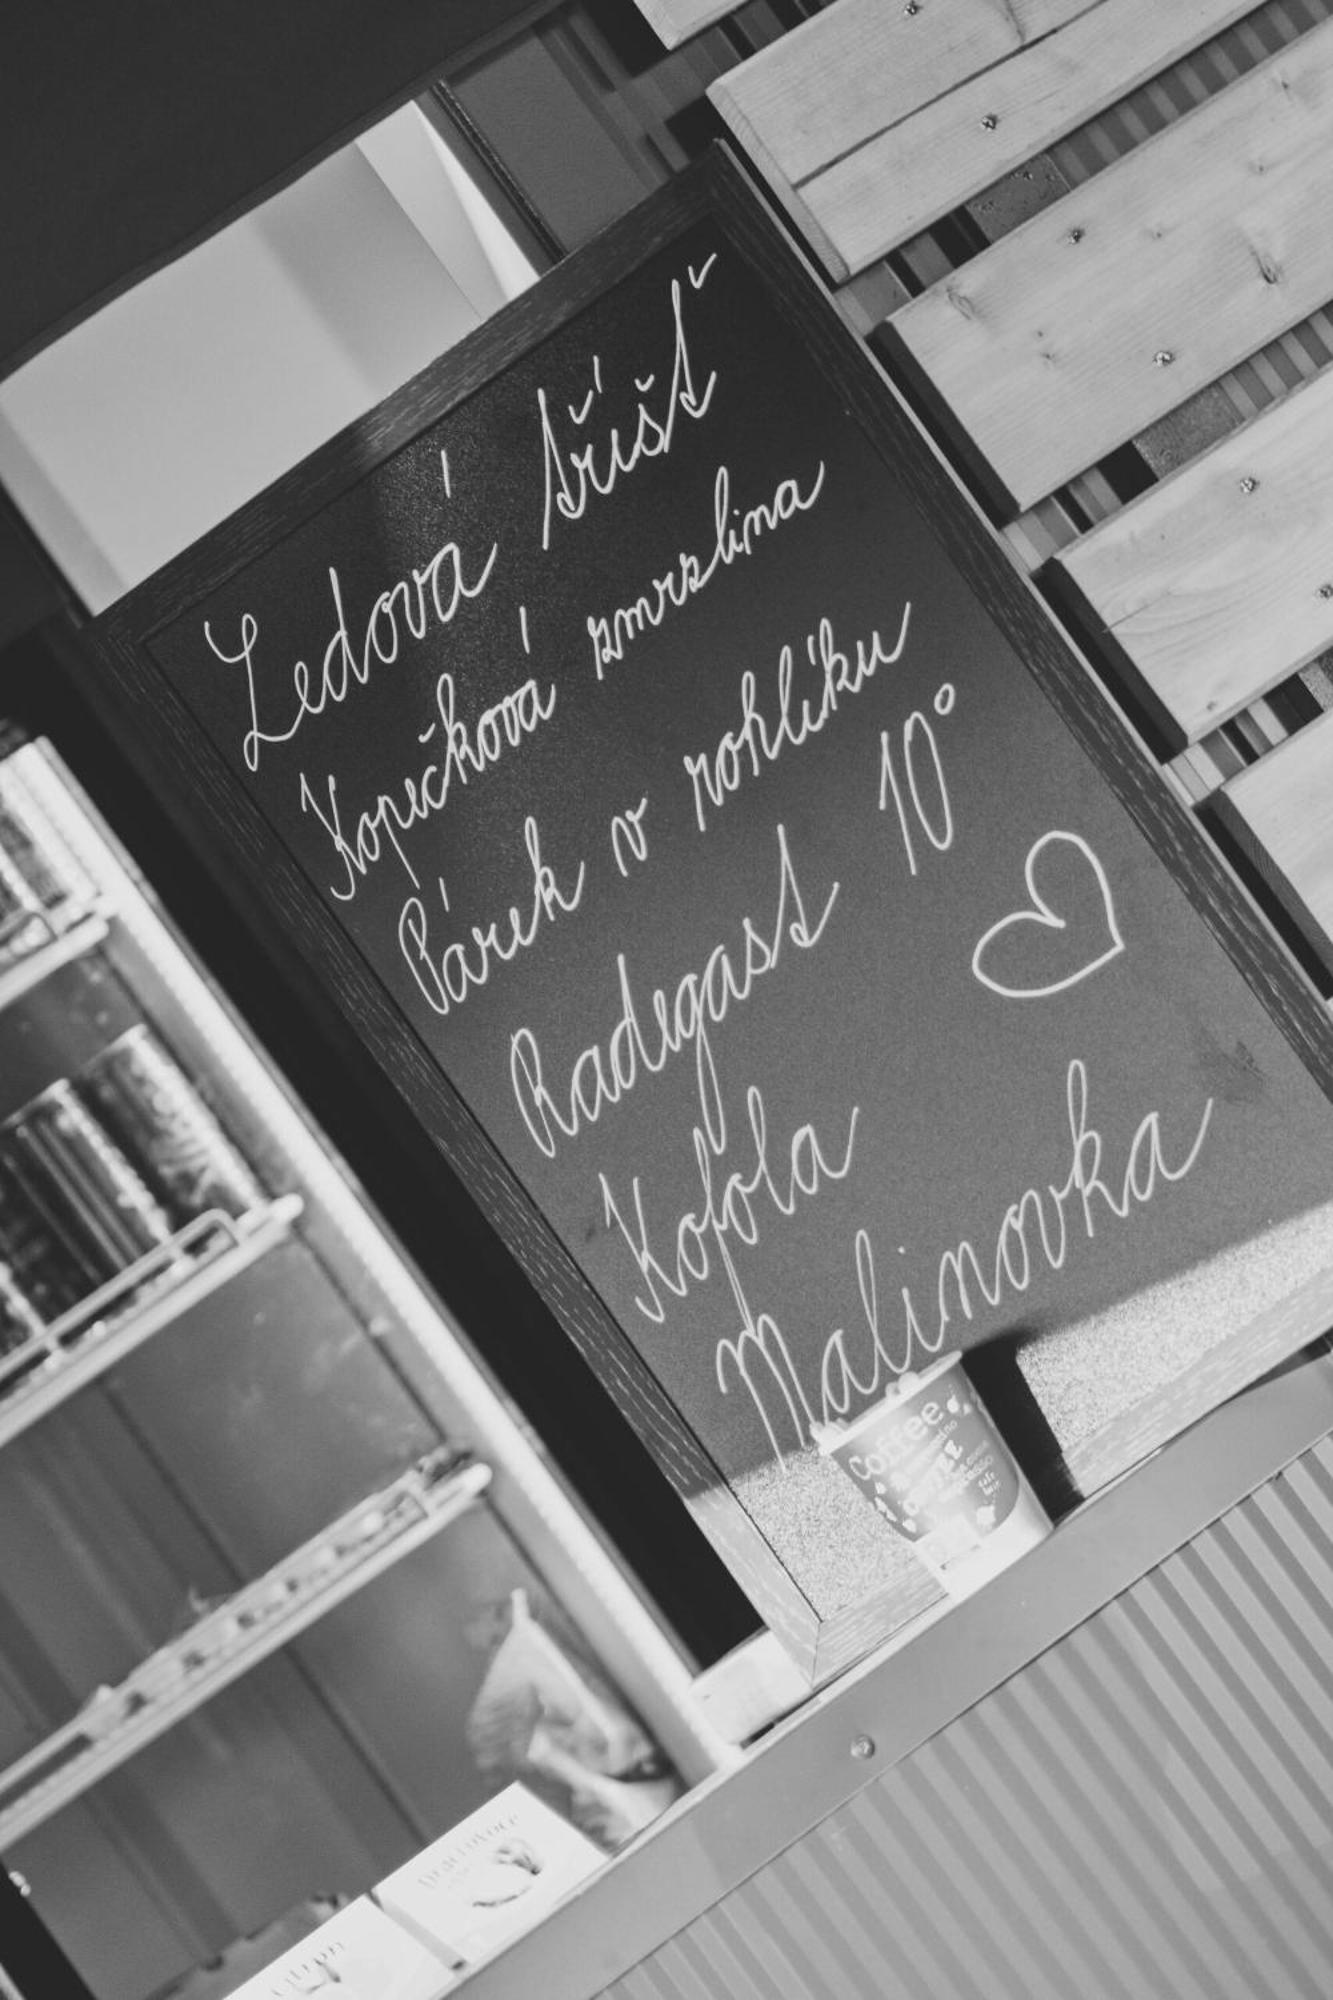 Ledová tříšť
Kopečková zmrzlina
Párek v rohlíku
Radegast 10°
Kofola
Malinovka
Coffee